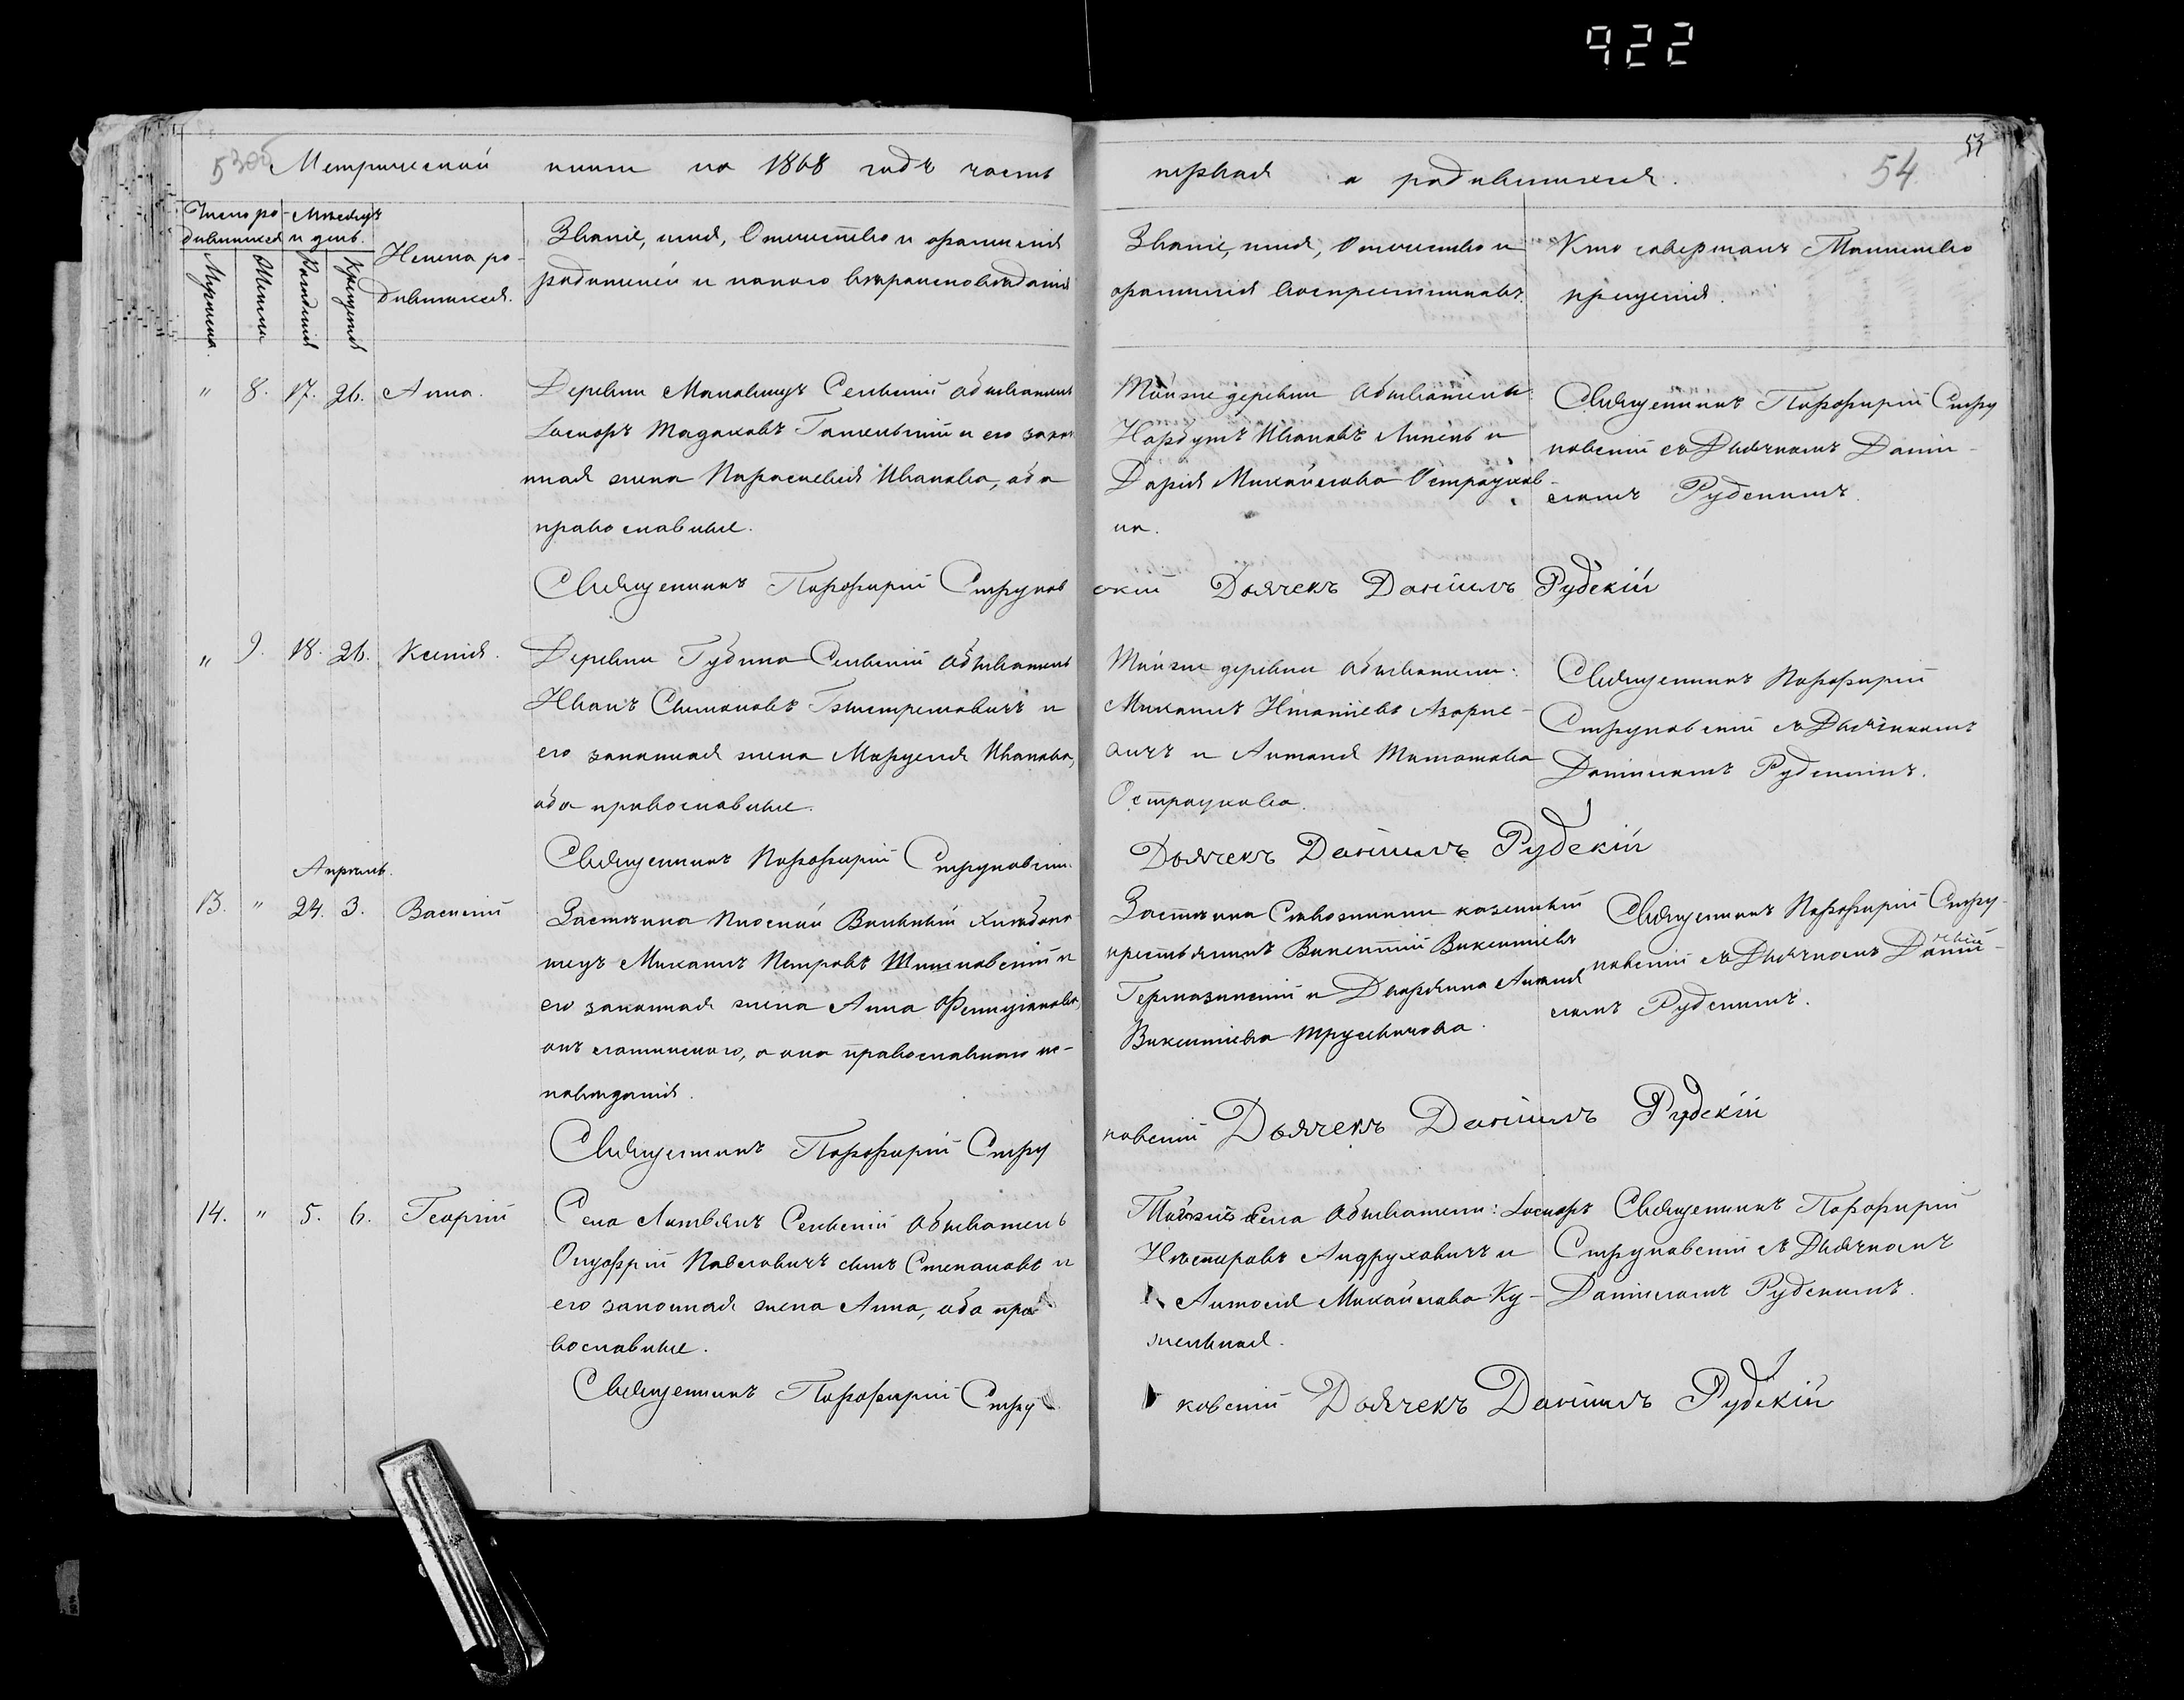 922
53об Метрической книги на 1868 годъ часть
первая о родившихся. 54 53
Число ро-
дившихся
Мѣсяцъ
и день.
Мужеска.
Женска
Рожденія
Крещенія
Имена ро-
дившихся.
Званіе, имя, Отчество и фамилія
родителей и какого вѣроисповѣданія
Званіе, имя, Отчество и
фамилія воспріемниковъ.
Кто совершалъ Таинство
крещенія.
" 8. 17. 26. Анна.
Деревни Маковищъ Сельскій обыватель
Іосифъ Тадеевъ и его закон
ная жена Параскевія Иванова, оба
православные.
Тойже деревни обыватели:
Ивановъ и
Дарія Михайлова Остраухов-
на.
Священникъ Порфирій Стру
ковскій съ Дьячкомъ Дани-
ломъ Рудскимъ.
Священникъ Порфирій Струков
скій Дьячекъ Даніилъ Рудскій
" 9. 18. 26. Ксенія.
Деревни Губина Сельскій обыватель
Иванъ Симоновъ и
его законная жена Маруся Иванова,
оба православные.
Тойже деревни обыватели:
Михаилъ Игнатіевъ Азаре-
вичъ и Антонія
Остраухова.
Священникъ Порфирій
Струковскій съ Дьячкомъ
Даніиломъ Рудскимъ.
Священникъ Порфирій Струковскій.
Дьячекъ Даніилъ Рудскій
Апрѣль.
13. " 24. 3. Василій
Застѣнка Вольный хлѣбопа-
шецъ Михаилъ Петровъ и
его законная жена Анна Фелиціанова,
онъ латинскаго, а она православнаго ис-
повѣданія.
Застѣнка казенный
крестьянинъ Викентій Викентіевъ
и Дворянка Антонія
Викентіева
Священникъ Порфирій Стру-
ковскій съ Дьячкомъ Дані-
ломъ Рудскимъ.
Священникъ Порфирій Стру
ковскій Дьячекъ Даніилъ Рудскій
14. " 5. 6. Георгій
Села Литвянъ Сельскій обыватель
Онуфрій Павловичъ сынъ Степановъ и
его законная жена Анна, оба пра
вославные.
Тогоже Села обыватели: Іосифъ
Несторовъ Андруховичъ и
Антонія Михайлова Ку-
жельная.
Священникъ Порфирій
Струковскій съ Дьячкомъ
Даніиломъ Рудскимъ.
Священникъ Порфирій Стру
ковскій Дьячекъ Даніилъ Рудскій